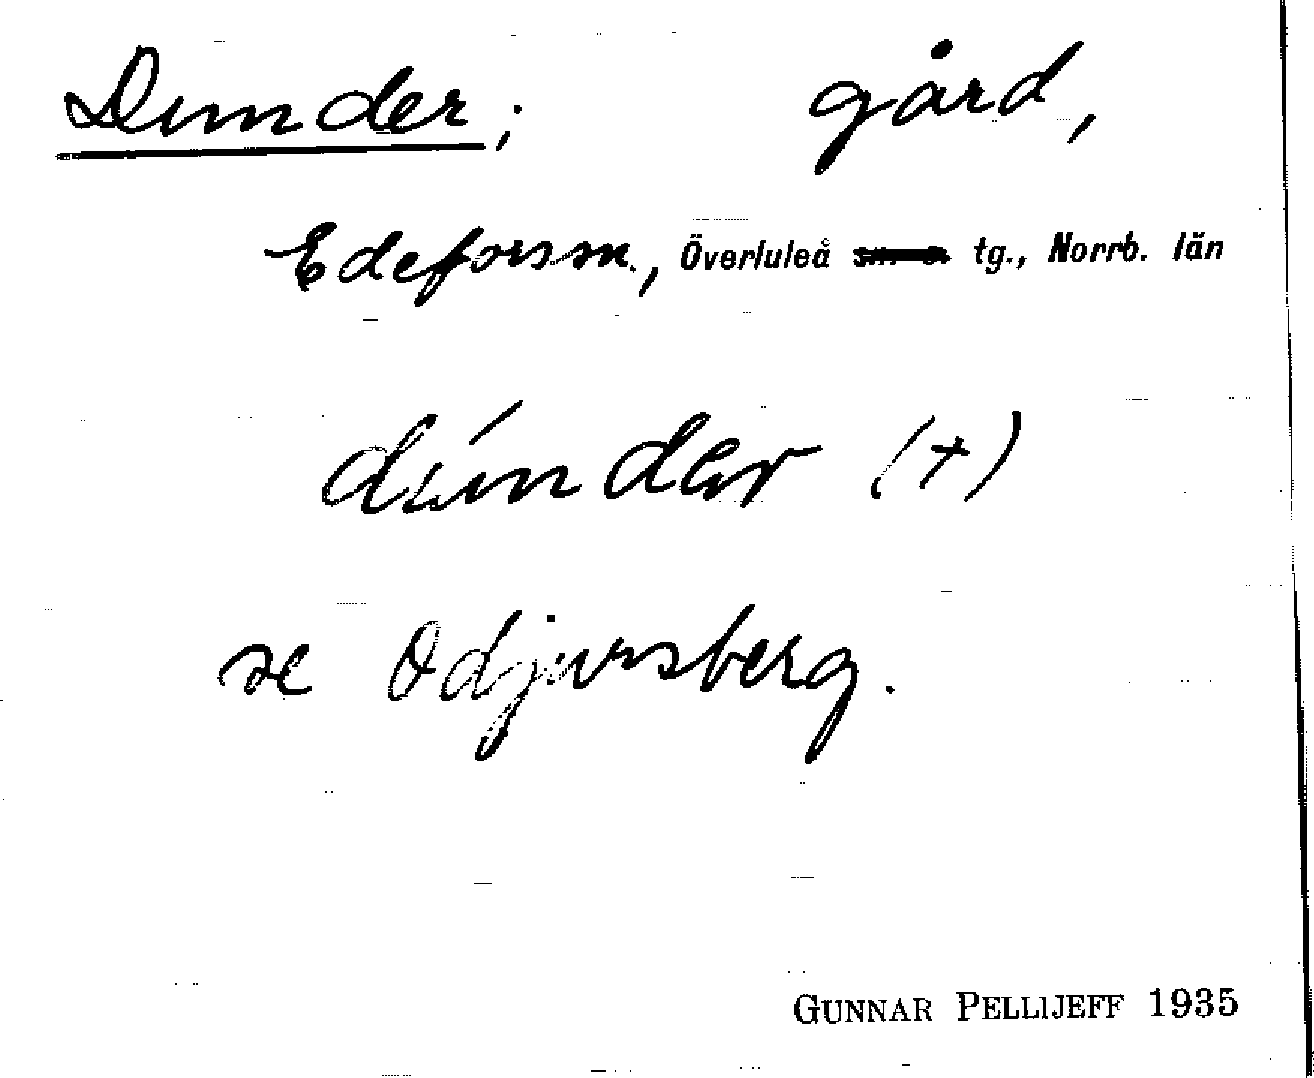 Dunder; gård,
Edefors sn., Överluleå sn. o. tg., Norrb. län
dúndər (+)
se Odjursberg.
GUNNAR PELLIJEFF 1935